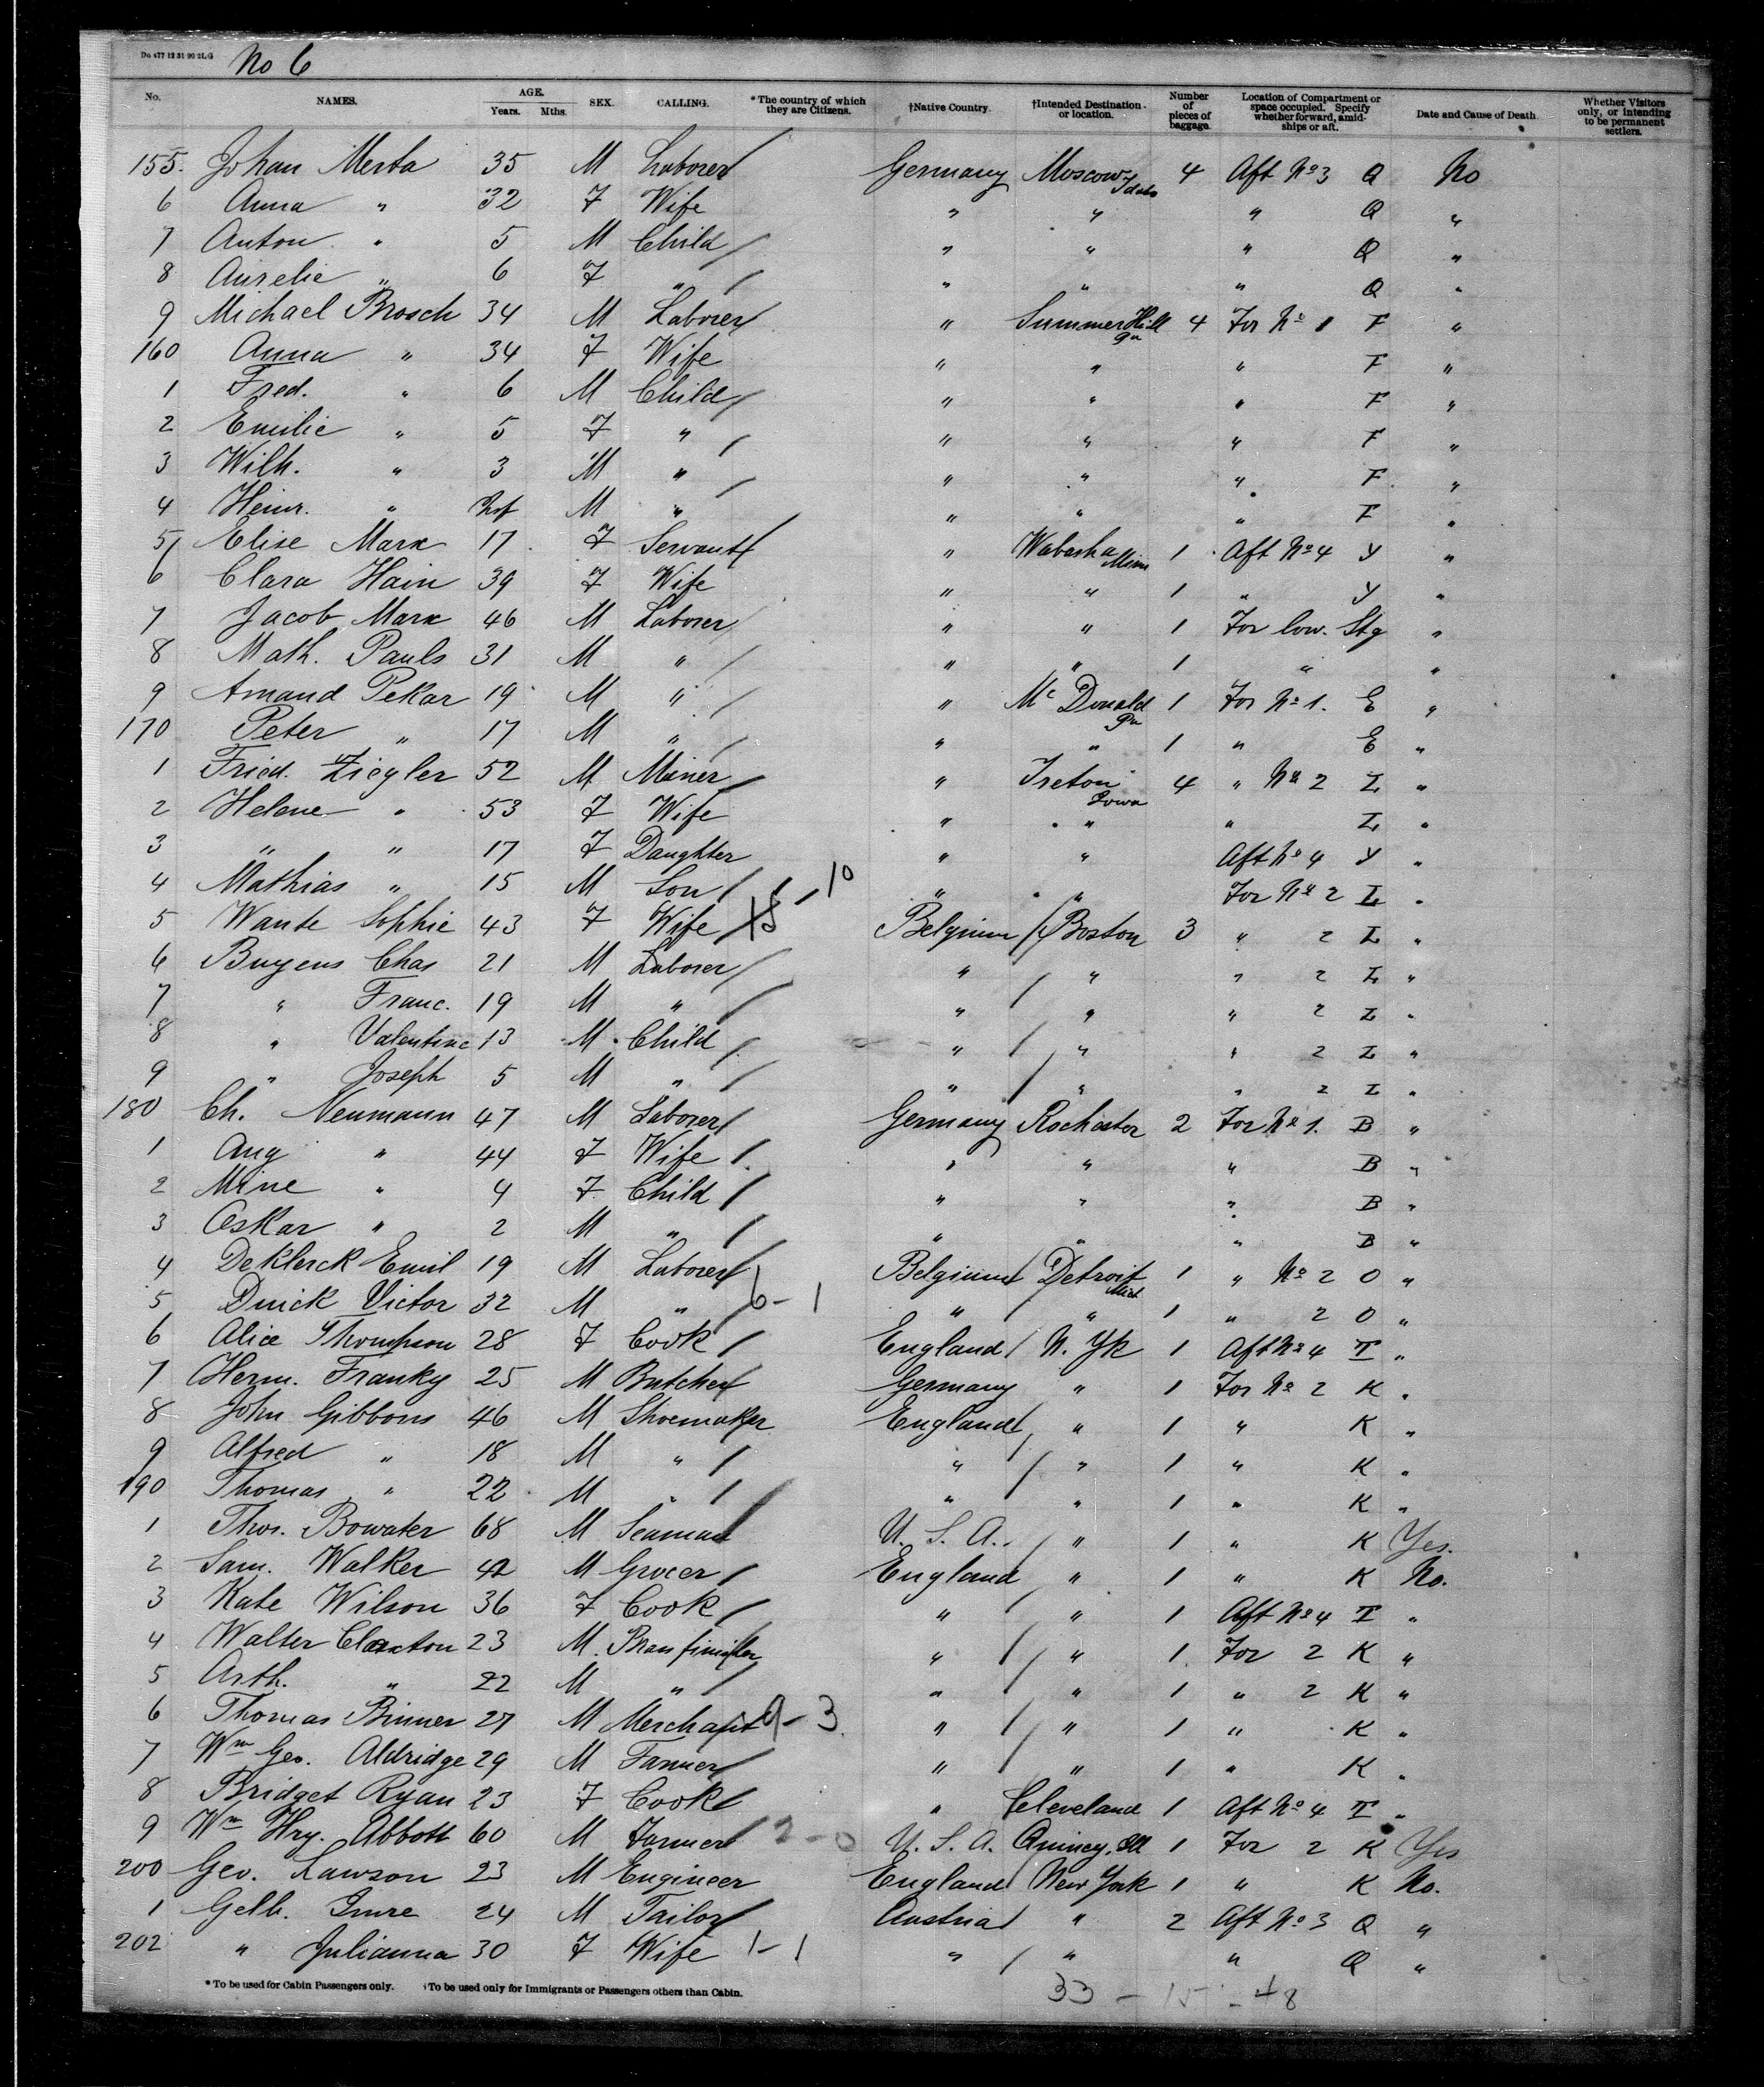 Do 477 12 31 90 2LG No 6
No. NAMES. AGE. Years. Mths. SEX. CALLING. *The country of which they are Citizens. †Native Country. †Intended Destination or location. Number of pieces of baggage. Location of Compartment or space occupied. Specify whether forward, amidships or aft. Date and Cause of Death. Whether Visitors only, or intending to be permanent settlers.
155. Johan Merta 35 M Laborer Germany Moscow Idaho 4 Aft No 3 Q No
6 Anna " 32 F Wife " " " Q "
7 Anton " 5 M Child " " " Q "
8 Aurelie " 6 F " " " " Q "
9 Michael Brosch 34 M Laborer " Summer Hill Pa 4 For No 1 F "
160 Anna " 34 F Wife " " " F "
1 Fred. " 6 M Child " " " F "
2 Emilie " 5 F " " " " F "
3 Wilh. " 3 M " " " " F "
4 Heinr. " Inf M " " " " F "
5 Elise Marx 17 F Servant " Wabasha Minn 1 Aft No 4 Y "
6 Clara Hain 39 F Wife " " 1 " Y "
7 Jacob Marx 46 M Laborer " " 1 For low. Stg "
8 Math. Pauls 31 M " " " 1 " "
9 Amand Pekar 19 M " " Mc Donald Pa 1 For No 1. E "
170 Peter " 17 M " " " 1 " E "
1 Fried. Ziegler 52 M Miner " Ireton Iowa 4 " No 2 L "
2 Helene " 53 F Wife " " " L "
3 " " 17 F Daughter " " Aft No 4 Y "
4 Mathias " 15 M Son 10 " " For No 2 L "
5 Wante Sophie 43 F Wife 15 Belgium Boston 3 " 2 L "
6 Buyens Chas 21 M Laborer " " " 2 L "
7 " Franc. 19 M " " " " 2 L "
8 " Valentine 13 M Child " " " 2 L "
9 " Joseph 5 M " " " " 2 L "
180 Ch. Neumann 47 M Laborer Germany Rochester 2 For No 1. B "
1 Aug " 44 F Wife " " " B "
2 Mine " 4 F Child " " " B "
3 Oskar " 2 M " " " " B "
4 DeKlerck Emil 19 M Laborer Belgium Detroit Mich 1 " No 2 O "
5 Duick Victor 32 M " 6 - 1 " " 1 " 2 O "
6 Alice Thompson 28 F Cook England N. Yk 1 Aft No 4 T "
7 Herm. Franky 25 M Butcher Germany " 1 For No 2 K "
8 John Gibbons 46 M Shoemaker England " 1 " K "
9 Alfred " 18 M " " " 1 " K "
190 Thomas " 22 M " " " 1 " K "
1 Thos. Bowater 68 M Seaman U. S. A. " 1 " K Yes.
2 Sam. Walker 42 M Grocer England " 1 " K No.
3 Kate Wilson 36 F Cook " " 1 Aft No 4 T "
4 Walter Claxton 23 M " " 1 For 2 K "
5 Arth. " 22 M " " " 1 " 2 K "
6 Thomas Binner 27 M Merchant 9 - 3 " " 1 " K "
7 Wm Geo. Aldridge 29 M Farmer " " 1 " K "
8 Bridget Ryan 23 F Cook " Cleveland 1 Aft No 4 T "
9 Wm Hry. Abbott 60 M Farmer 2 - 0 U. S. A. Quincy, Ill 1 For 2 K Yes
200 Geo. Lawson 23 M Engineer England New York 1 " K No.
1 Gelb. Imre 24 M Tailor Austria " 2 Aft No 3 Q "
202 " Julianna 30 F Wife 1 - 1 " " " Q "
*To be used for Cabin Passengers only. †To be used only for Immigrants or Passengers others than Cabin.
33 - 15 - 48